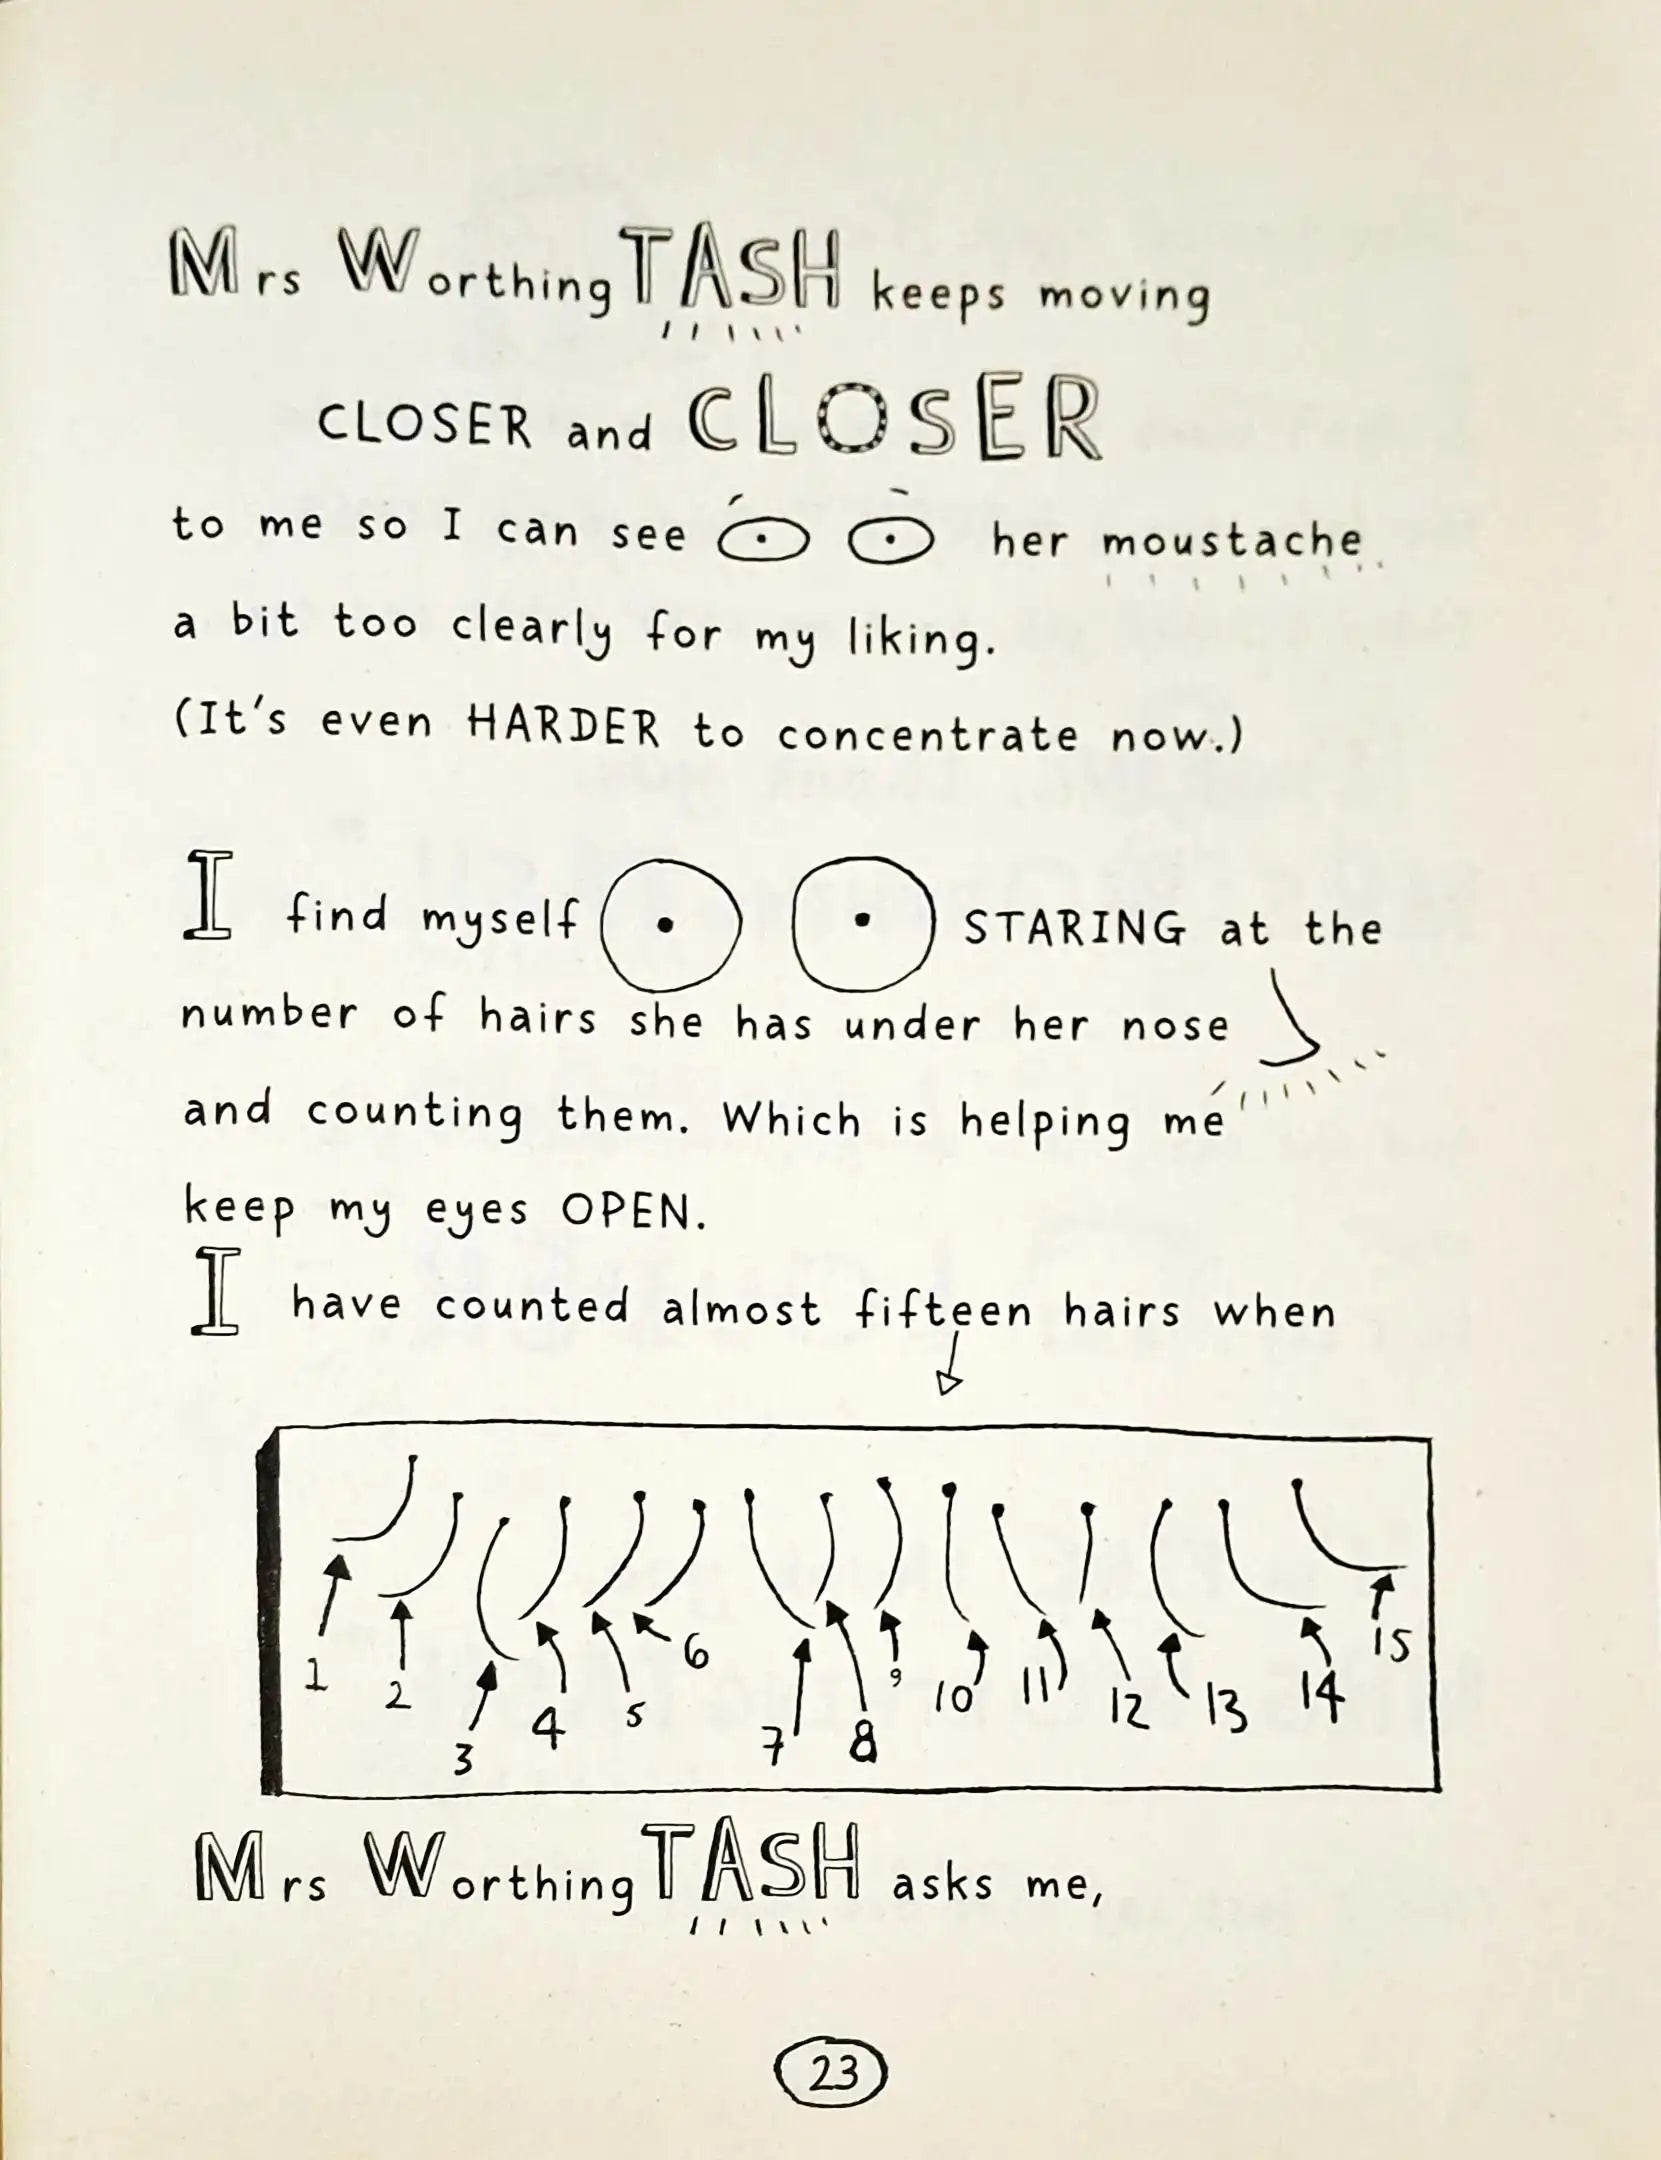 Mrs WorthingTASH keeps moving
CLOSER and CLOSER
to me so I can see her moustache
a bit too clearly for my liking.
(It's even HARDER to concentrate now.)
I find myself STARING at the
number of hairs she has under her nose
and counting them. Which is helping me
keep my eyes OPEN.
I have counted almost fifteen hairs when
1 2 3 4 5 6 7 8 9 10 11 12 13 14 15
Mrs WorthingTASH asks me,
23